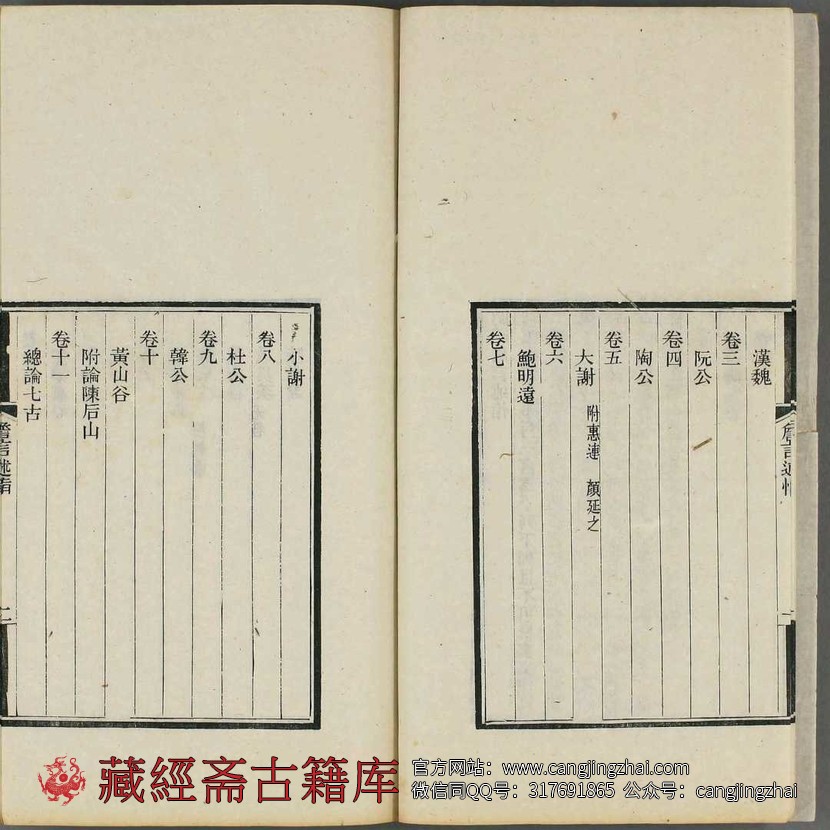 漢魏
卷三
阮公
卷四
陶公
卷五
大謝 附惠連 顏延之
卷六
鮑明遠
卷七
小謝
卷八
杜公
卷九
韓公
卷十
黃山谷
附論陳后山
卷十一
總論七古
二
藏經斋古籍库
官方网站：www.cangjingzhai.com
微信同QQ号：317691865 公众号：cangjingzhai